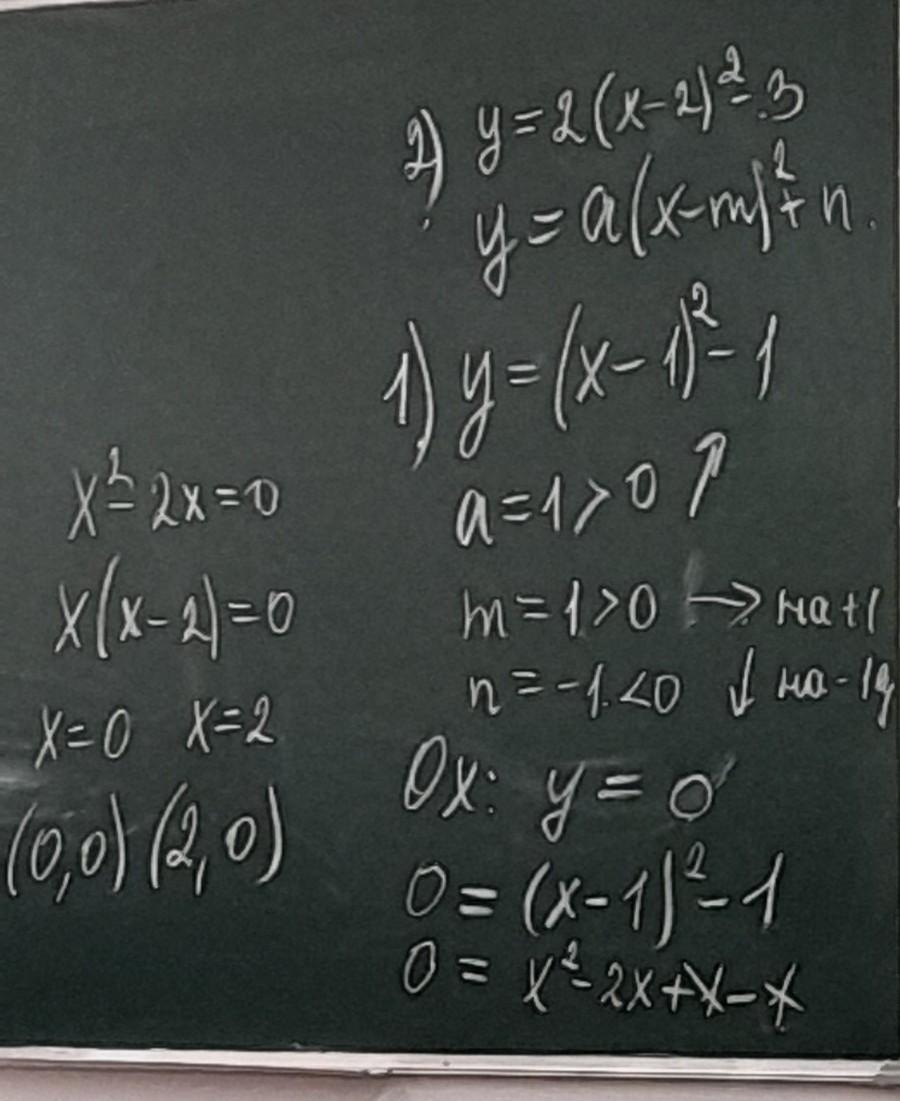 2) y=2(x-2)²-3
y=a(x-m)²+n.
1) y=(x-1)²-1
a=1>0 ↗
m=1>0 → на+1
n=-1.<0 ↓ на-1
Ox: y=0
0=(x-1)²-1
0=x²-2x+1-1
x²-2x=0
x(x-2)=0
x=0 x=2
(0,0) (2,0)